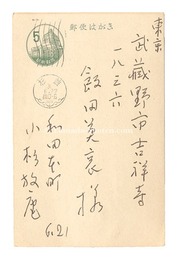 郵便はがき
5
東京
武蔵野市吉祥寺
一八三六
飯田美哀様
和田本町
小杉放庵
6.21